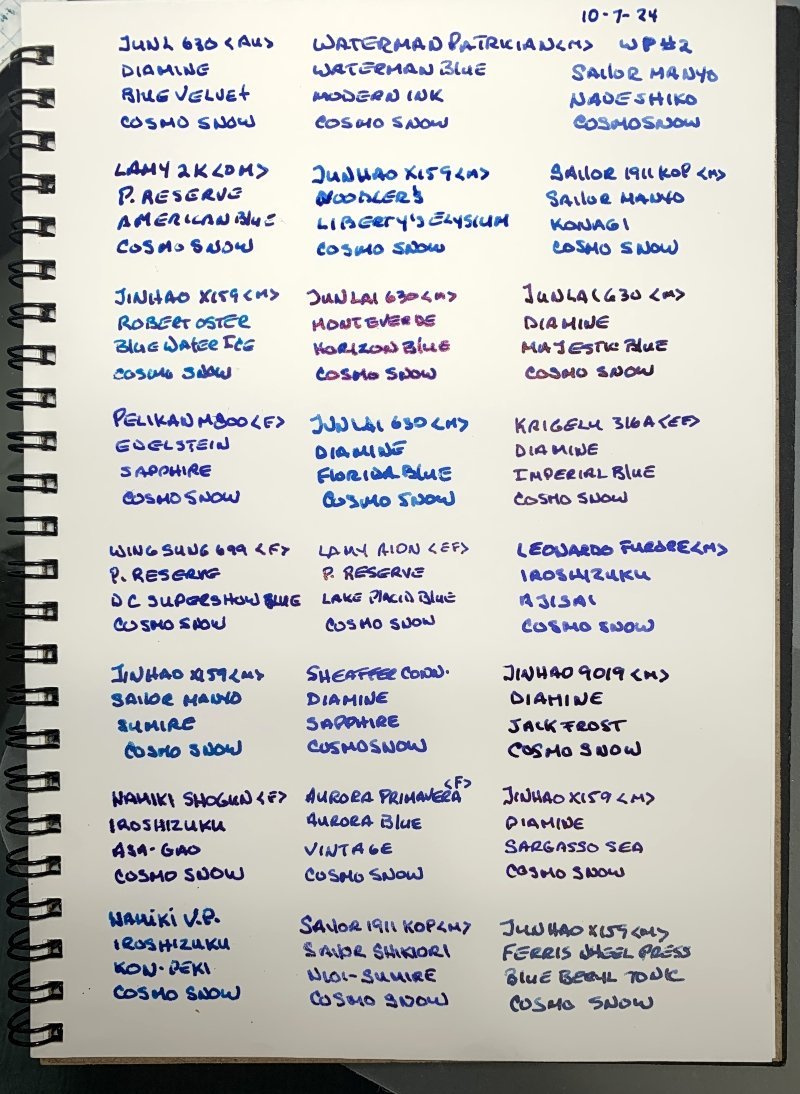 10-7-24
JUNL 630 <AU>
DIAMINE
BLUE VELVET
COSMO SNOW
WATERMAN PATRICIAN <M>
WATERMAN BLUE
MODERN INK
COSMO SNOW
WP#2
SAILOR MANYO
NADESHIKO
COSMO SNOW
LAMY 2K <OM>
P. RESERVE
AMERICAN BLUE
COSMO SNOW
JUNHAO X159 <M>
NOODLER'S
LIBERTY'S ELYSIUM
COSMO SNOW
SAILOR 1911 KOP <M>
SAILOR MANYO
KONAGI
COSMO SNOW
JINHAO X159 <M>
ROBERT OSTER
BLUE WATER ICE
COSMO SNOW
JUNLAI 630 <M>
MONTEVERDE
HORIZON BLUE
COSMO SNOW
JUNLAI 630 <M>
DIAMINE
MAJESTIC BLUE
COSMO SNOW
PELIKAN M800 <F>
EDELSTEIN
SAPPHIRE
COSMO SNOW
JUNLAI 630 <M>
DIAMINE
FLORIDA BLUE
COSMO SNOW
316A <EF>
DIAMINE
IMPERIAL BLUE
COSMO SNOW
WING SUNG 699 <F>
P. RESERVE
DC SUPERSHOW BLUE
COSMO SNOW
LAMY AION <EF>
P. RESERVE
LAKE PLACID BLUE
COSMO SNOW
LEONARDO FURORE <M>
IROSHIZUKU
AJISAI
COSMO SNOW
JINHAO X159 <M>
SAILOR MANYO
SUMIRE
COSMO SNOW
SHEAFFER CONN.
DIAMINE
SAPPHIRE
COSMO SNOW
JINHAO 9019 <M>
DIAMINE
JACK FROST
COSMO SNOW
NAMIKI SHOGUN <F>
IROSHIZUKU
ASA-GAO
COSMO SNOW
AURORA PRIMAVERA <F>
AURORA BLUE
VINTAGE
COSMO SNOW
JINHAO X159 <M>
DIAMINE
SARGASSO SEA
COSMO SNOW
NAMIKI V.P.
IROSHIZUKU
KON-PEKI
COSMO SNOW
SAILOR 1911 KOP <M>
SAILOR SHIKIORI
NIOI-SUMIRE
COSMO SNOW
JUNHAO X159 <M>
FERRIS WHEEL PRESS
BLUE BERYL TONIC
COSMO SNOW